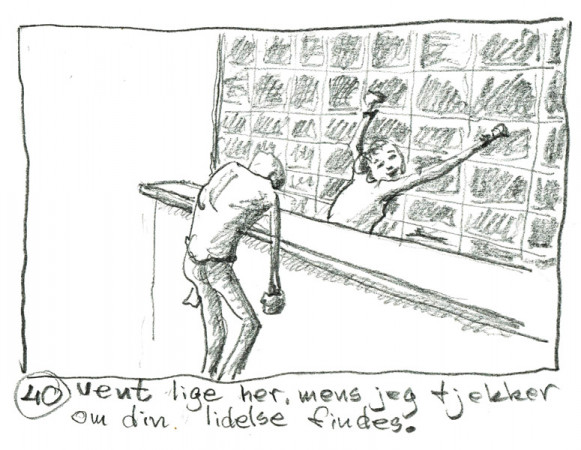 40 Vent lige her, mens jeg tjekker
om din lidelse findes.